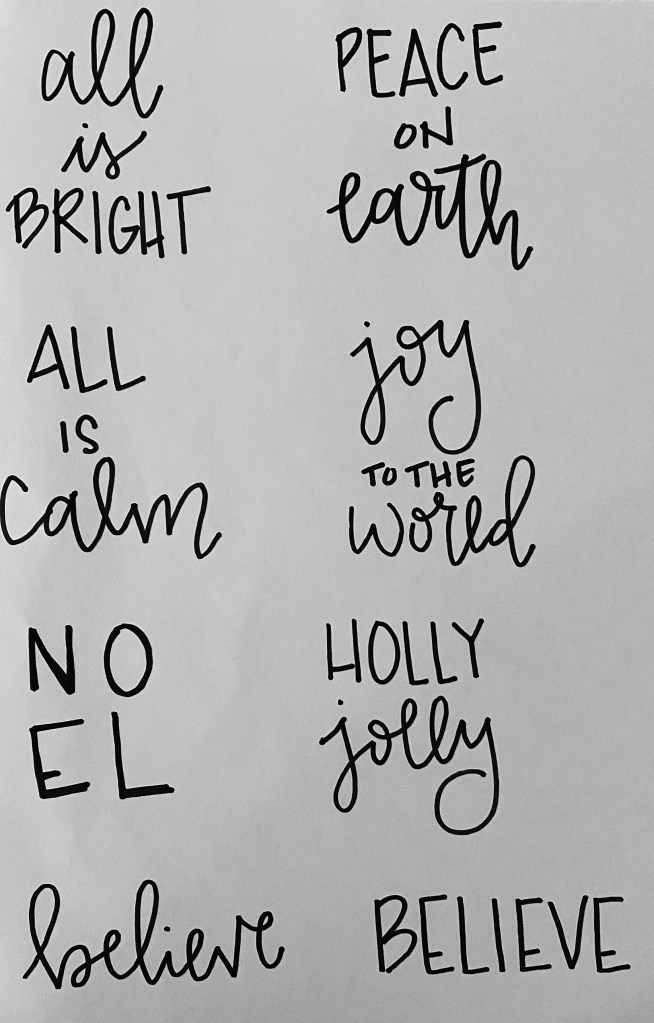 all
is
BRIGHT
PEACE
ON
earth
ALL
IS
calm
joy
TO THE
world
NO
EL
HOLLY
jolly
believe
BELIEVE